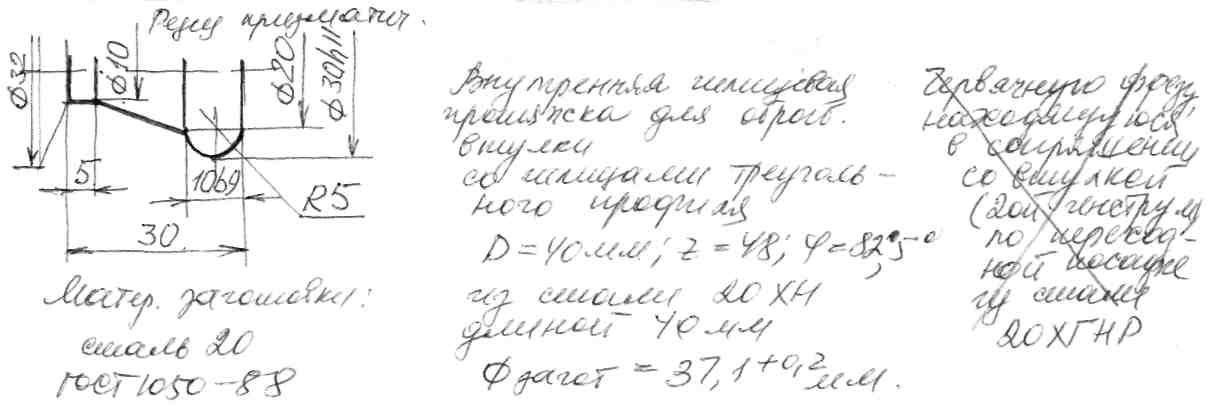 Резец призматич.
ф32
ф10
ф20
ф30h11
5
10b9
R5
30
Матер. заготовки:
сталь 20
ГОСТ 1050-88
Внутренняя шлицевая
протяжка для обраб.
втулки
со шлицами треуголь-
ного профиля
D=40мм; z=48; φ=82,5°
из стали 20ХН
длиной 40мм
Ф загот = 37,1+0,2 мм.
Червячную фрезу
находящуюся
в сопряжении
со втулкой
(2ой инструм)
по переход-
ной посадке
из стали
20ХГНР